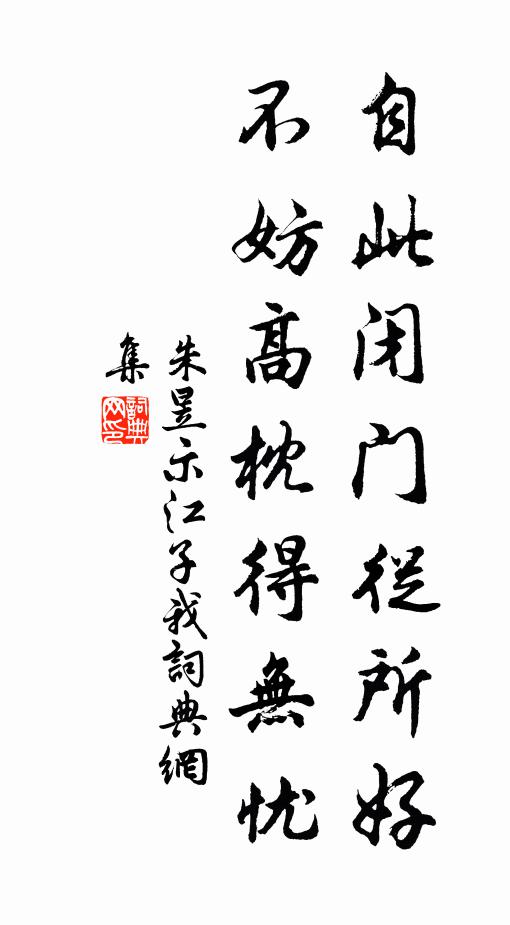 自此闭门従所好
不妨高枕得無忧
朱昱示江子我詞典網
集
詞典
网印